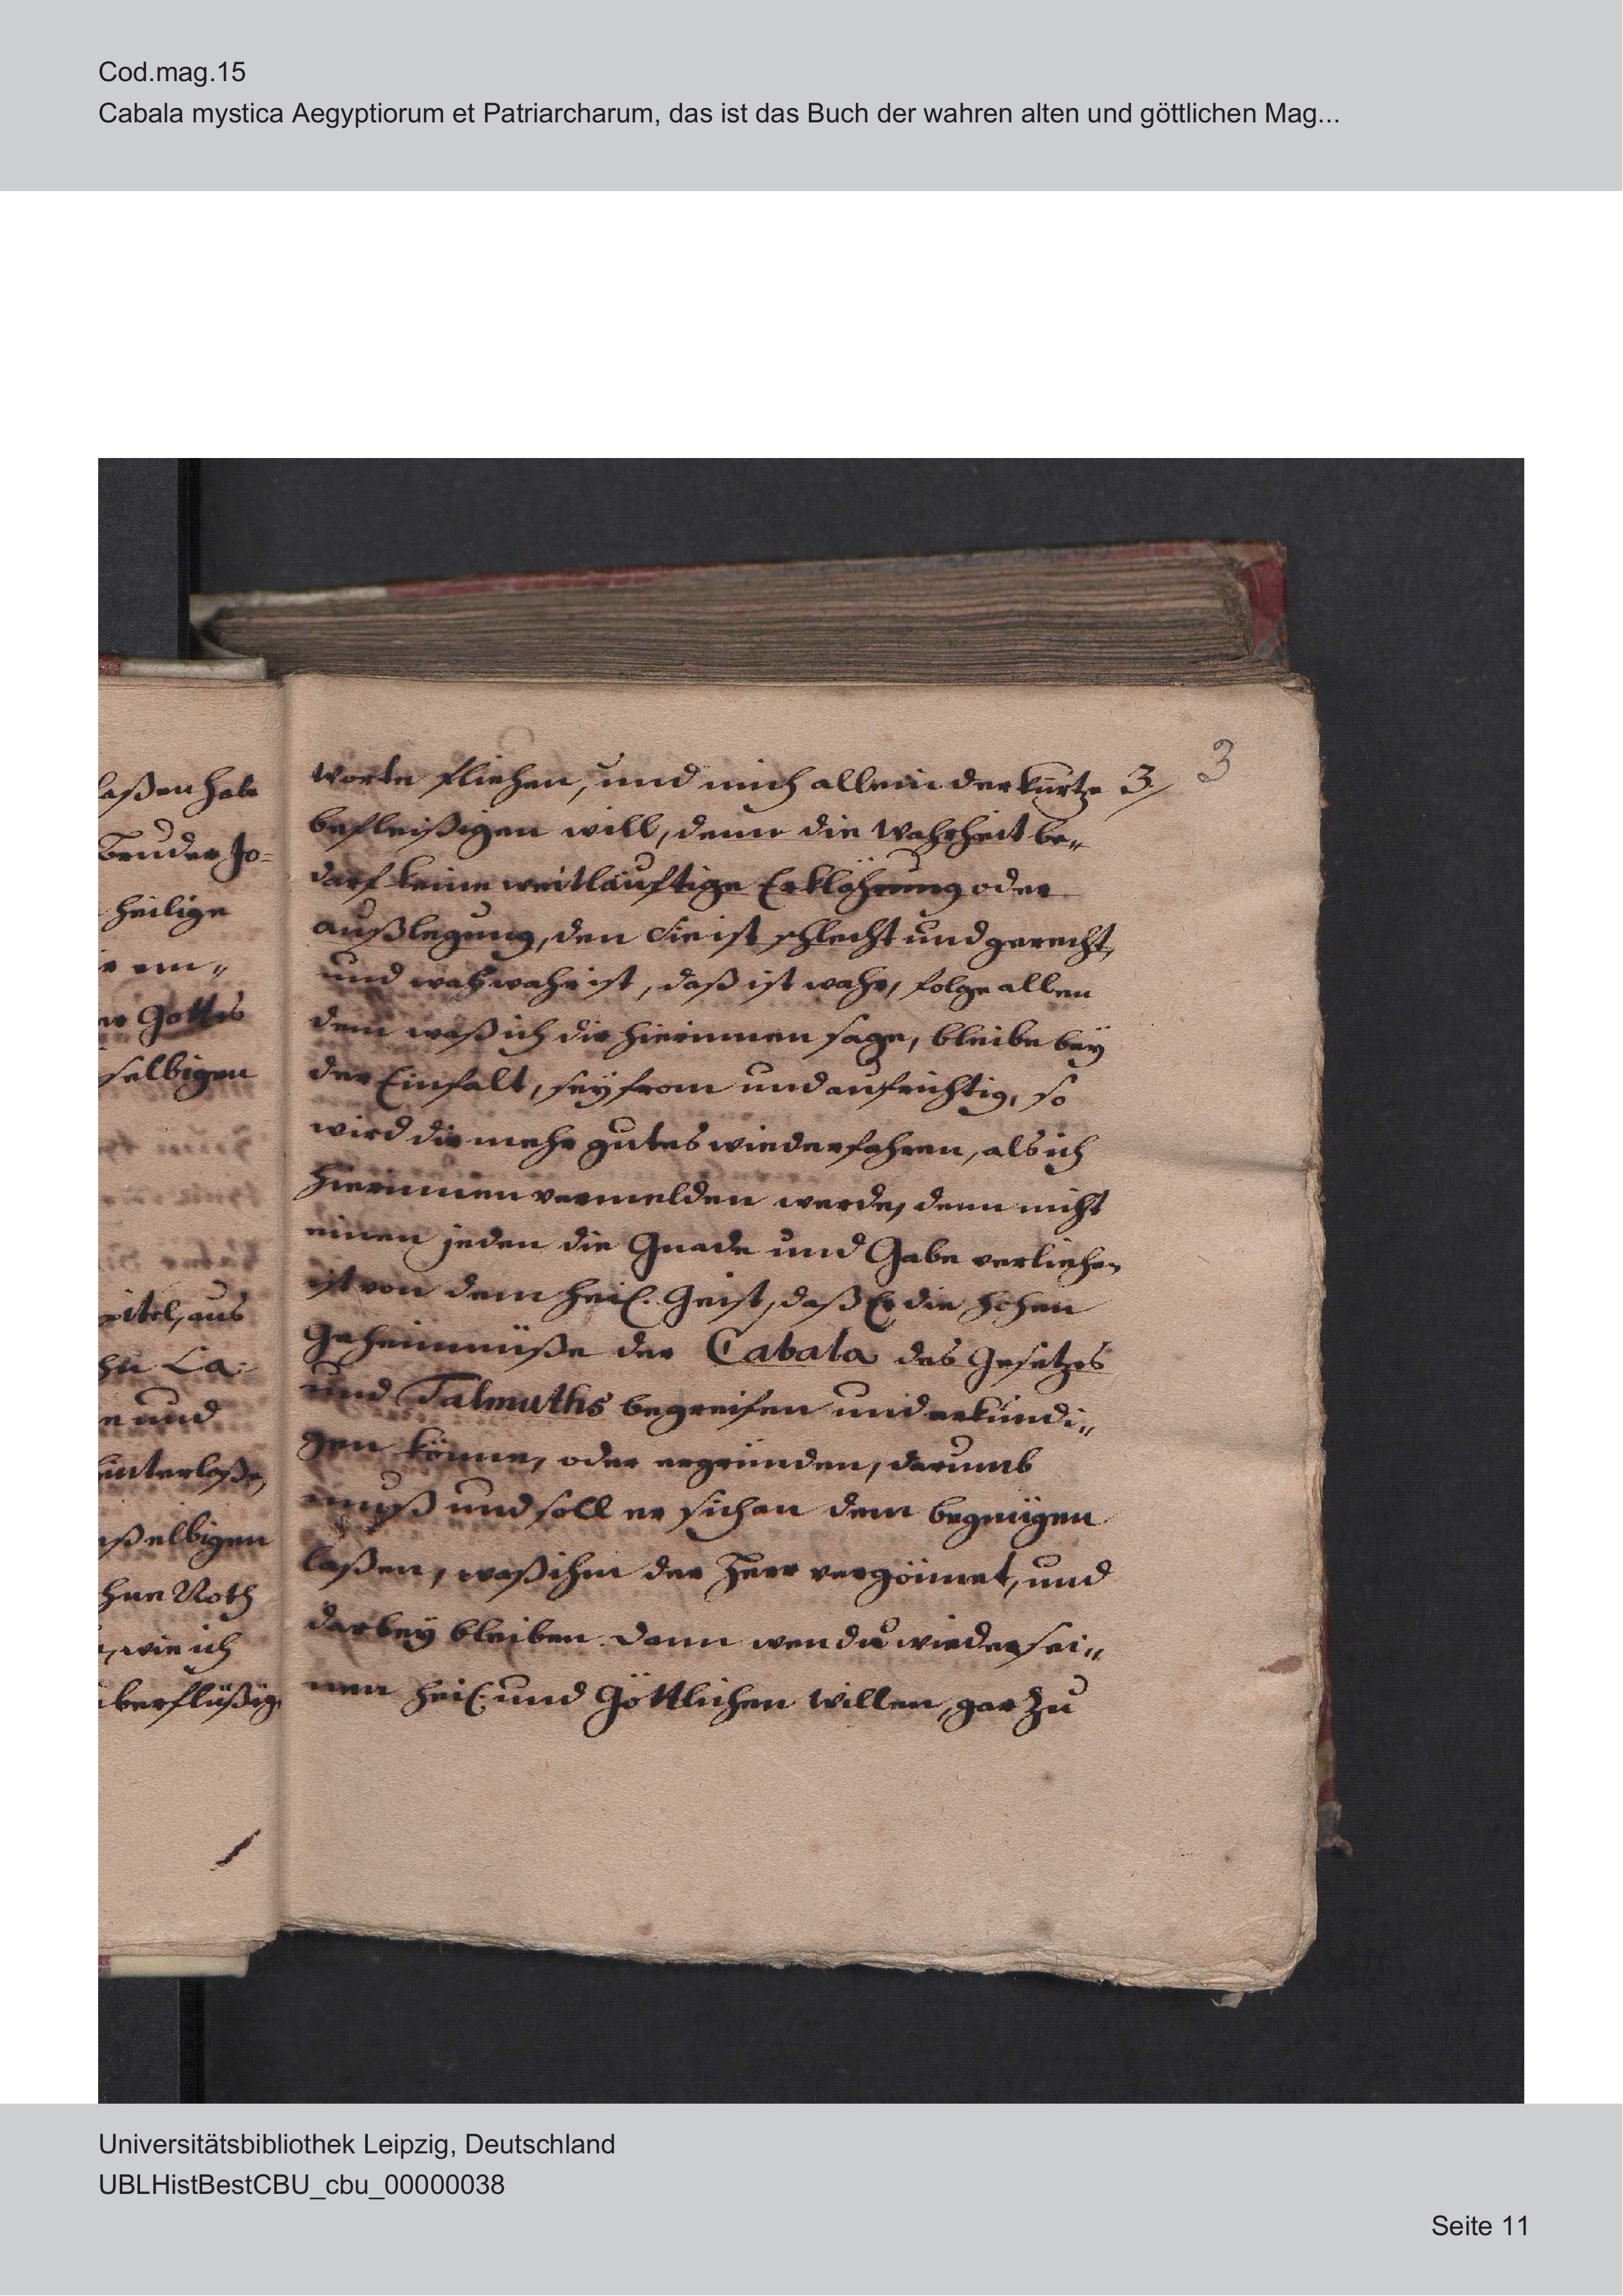 Cod.mag.15
Cabala mystica Aegyptiorum et Patriarcharum, das ist das Buch der wahren alten und göttlichen Mag...
laßen habe
Bruder Jo=
heilige
Gottes
selbigen
pitel, aus
La=
und
hinterlaße,
ßelbigen
hne Noth
wie ich
berflüßig
3
worte fliehen, und mich allein der kürtze 3/
befleißigen will, denn die Wahrheit be„
darf keine weitläuftige Erklährung oder
außlegung, den Sie ist schlecht und gerecht,
und waß wahr ist, daß ist wahr, folge allen
dem waß ich dir hierinnen sage, bleibe bey
der Einfalt, sey from und aufrichtig, so
wird dir mehr gutes wiederfahren, als ich
hierinnen vermelden werde, denn nicht
einen jeden die Gnade und Gabe verliehen
ist von dem heil. Geist, daß Er die hohen
Geheimnüße der Cabala des Gesetzes
und Talmuths begreifen und erkundi„
gen könne, oder ergründen, darumb
muß und soll er sich an dem begnügen
laßen, waß ihm der Herr vergönnet, und
darbey bleiben. dann wen du wieder sei„
nen heil. und Göttlichen willen, gar zu
Universitätsbibliothek Leipzig, Deutschland
UBLHistBestCBU_cbu_00000038
Seite 11